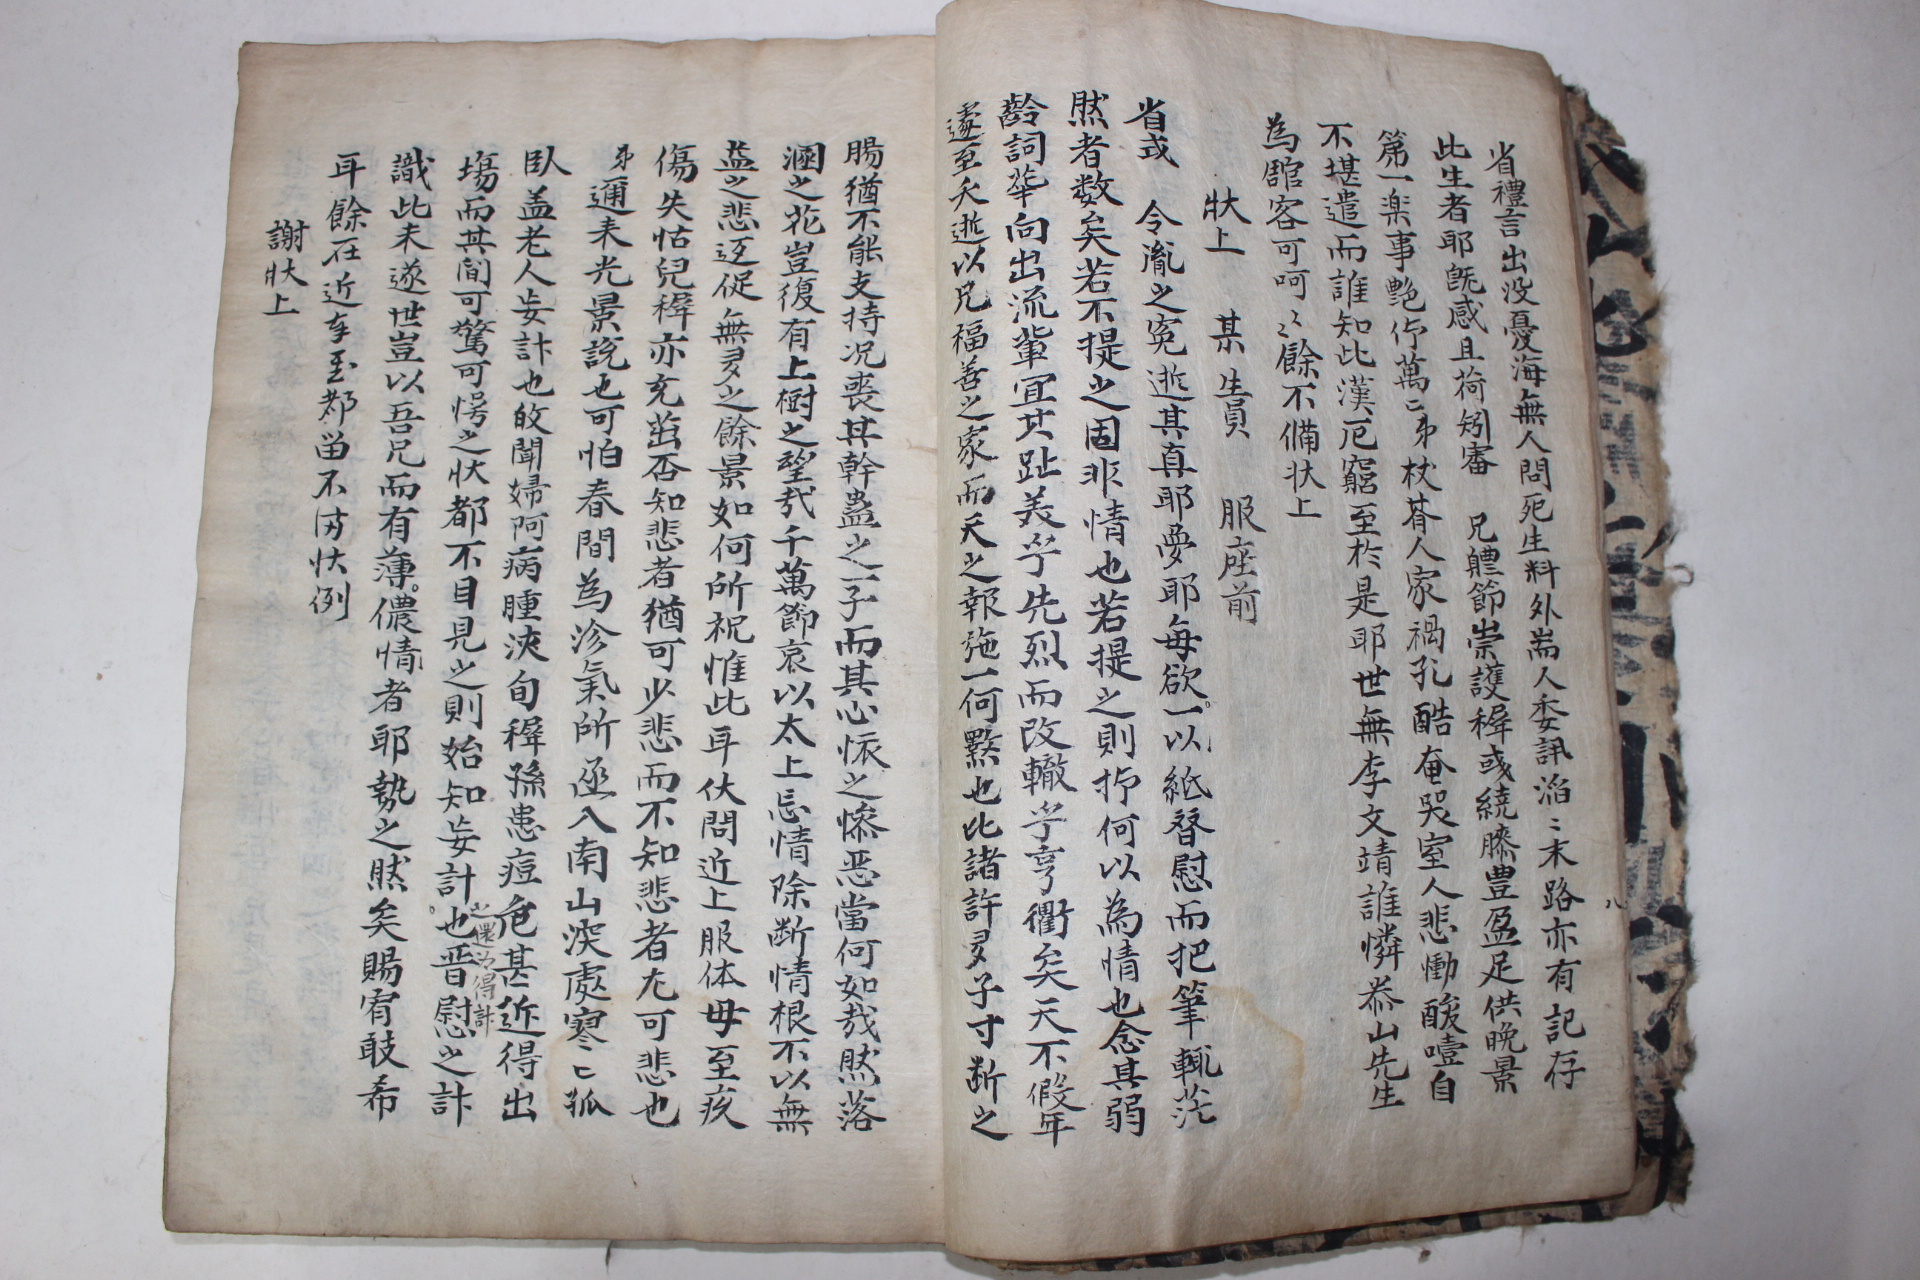 省禮言出没憂海無人問死生料外耑人委訊滔〻末路亦有記存
此生者耶旣感且荷矧審 兄軆節崇護穉或繞膝豊盈足供晩景
第一楽事艶仰萬〻弟杖朞人家禍孔酷奄哭室人悲慟酸噎自
不堪遣而誰知此漢厄窮至於是耶世無李文靖誰憐恭山先生
為舘客可呵〻餘不備狀上
狀上 某生員 服座前
省式 令胤之寃逝其真耶夢耶每欲一以紙替慰而把筆輒茫
然者数矣若不提之固非情也若提之則抑何以為情也念其弱
齡詞華向出流輩宜其趾美乎先烈而改轍乎亨衢矣天不假年
遽至夭逝以兄福善之家而天之報施一何黙也比諸許多子寸断之
腸猶不能支持况喪其幹蠱之一子而其心懷之慘恶當何如哉然落
溷之花豈復有上樹之望哉千萬節哀以太上忘情除断情根不以無
益之悲逕促無多之餘景如何所祝惟此耳伏問近上服体毋至疚
傷失怙兒穉亦充茁否知悲者猶可少悲而不知悲者尤可悲也
弟邇来光景說也可怕春間為沴氣所 入南山深處寒〻孤
臥盖老人妄計也故聞婦阿病腫浹旬穉孫患痘危甚近得出
場而其間可驚可愕之狀都不目見之則始知妄計之還为得計也晋慰之計
識此未遂世豈以吾兄而有薄儂情者耶勢之然矣賜宥敢希
耳餘在近幸至都留不俻狀例
謝狀上
八